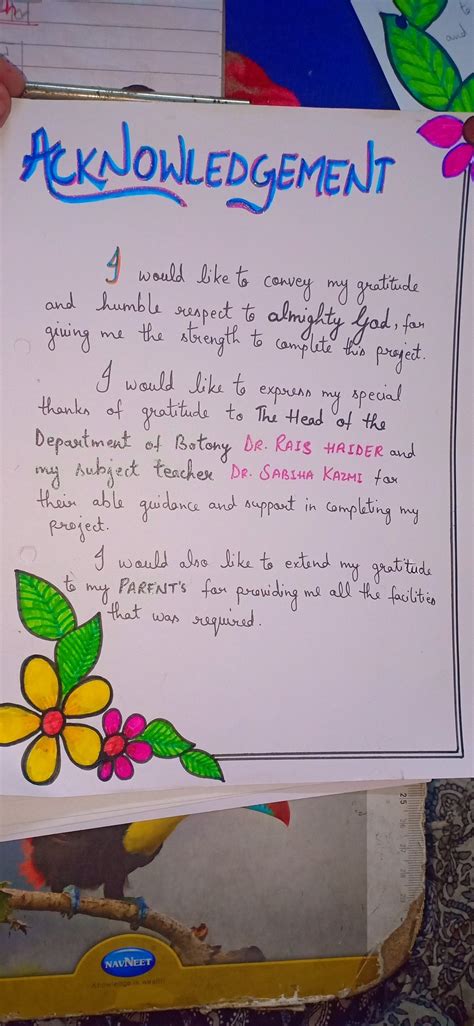 ACKNOWLEDGEMENT
I would like to convey my gratitude
and humble respect to almighty God, for
giving me the strength to complete this project.
I would like to express my special
thanks of gratitude to The Head of the
Department of Botony DR. RAIS HAIDER and
my subject teacher DR. SABIHA KAZMI for
their able guidance and support in completing my
project.
I would also like to extend my gratitude
to my PARENT'S for providing me all the facilities
that was required.
25
NAVNEET
Knowledge is wealth